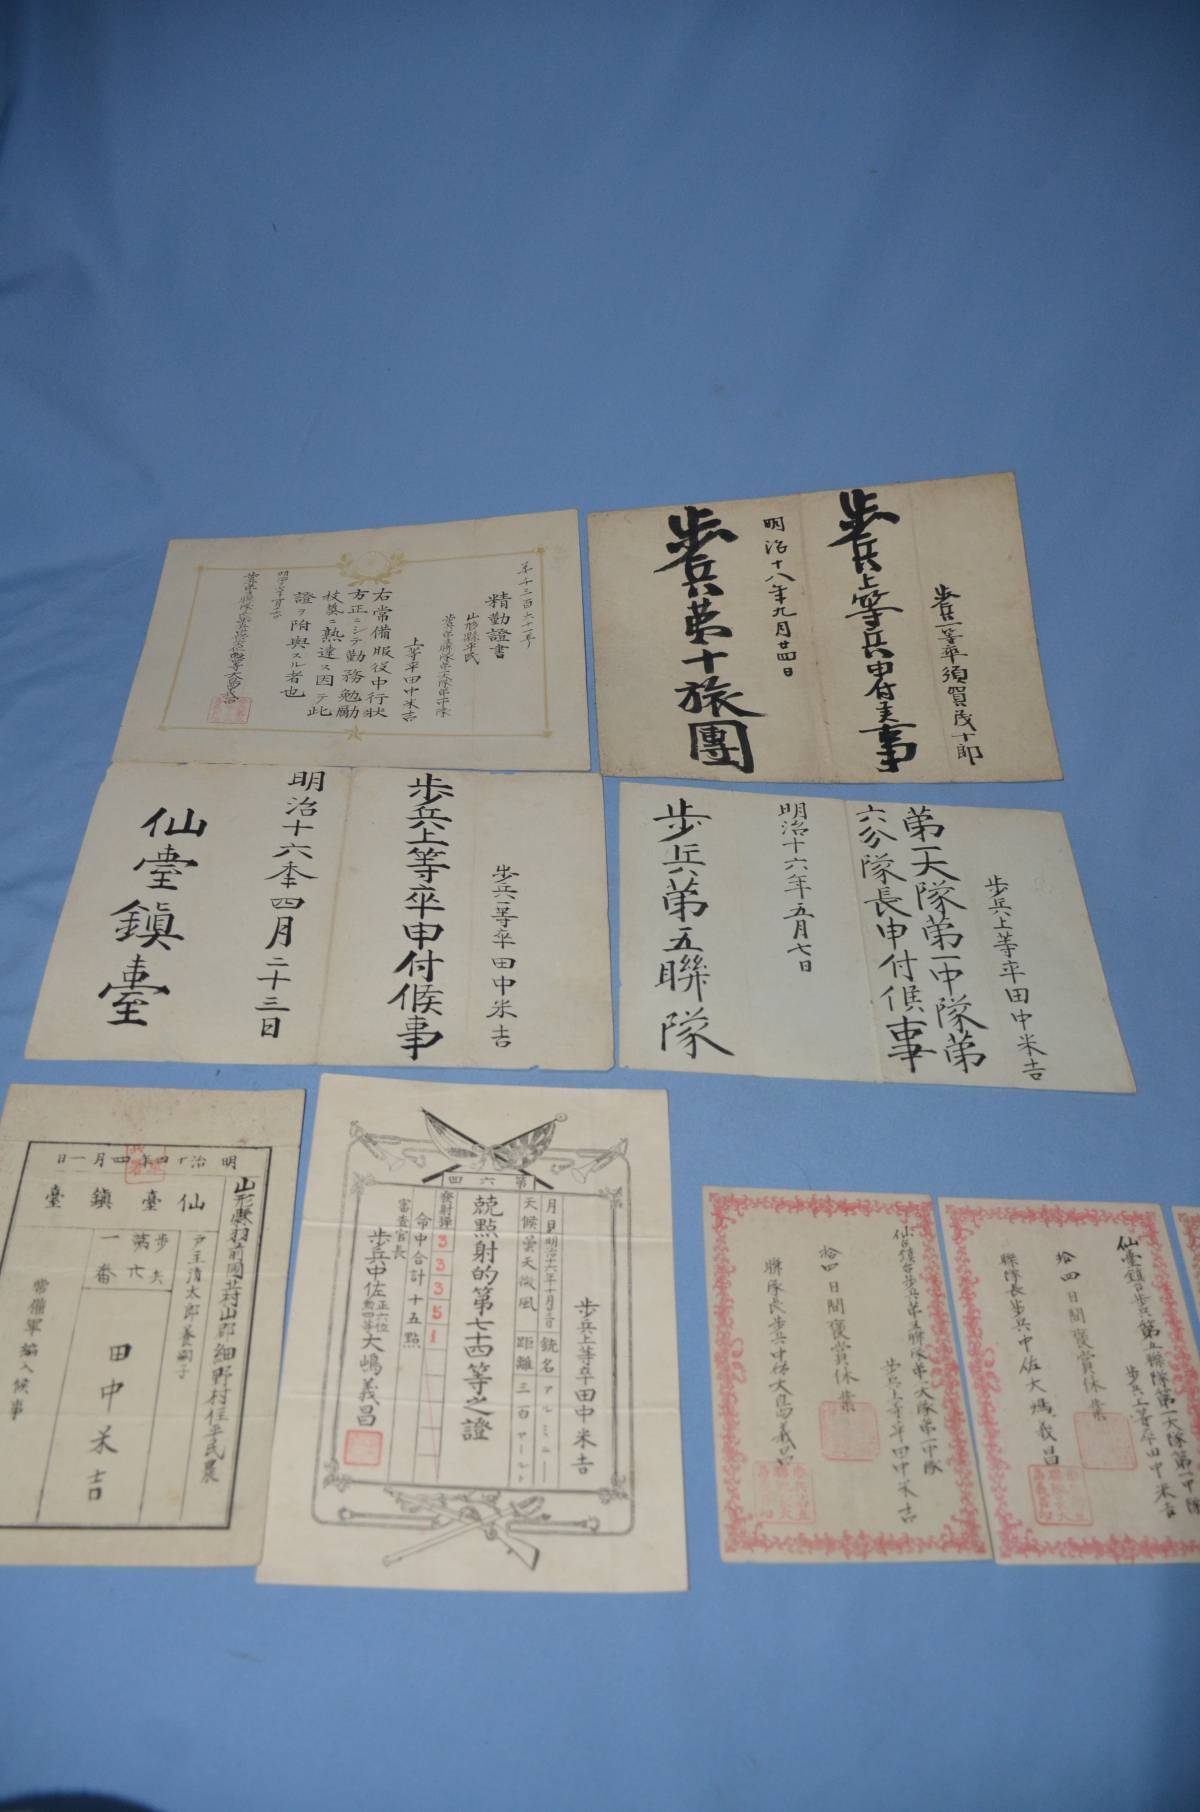 精勤證書
山形縣平民
上等卒田中米吉
右常備服役中行状
方正ニシテ勤務勉励
技藝ニ熟達ス因テ此
證ヲ附與スル者也
歩兵一等卒須賀茂十郎
歩兵上等兵申付候事
明治十八年九月廿四日
歩兵第十旅團
歩兵一等卒田中米吉
歩兵上等卒申付候事
明治十六年四月二十三日
仙臺鎮臺
歩兵上等卒田中米吉
第一大隊第一中隊第
六分隊長申付候事
明治十六年五月七日
歩兵第五聯隊
明治十四年四月一日
山形縣羽前國北村山郡細野村住平民農
戸主清太郎養嗣子
仙臺鎮臺
歩兵
第六
一番
田中米吉
常備軍編入候事
第六四
歩兵上等卒田中米吉
月日明治十六年十月 銃名アルミニー
天候曇天微風 距離三百ヤールト
競點射的第七十四等之證
發射弾 3 3 3 5 1
命中合計十五點
審査官長
歩兵中佐正六位勲四等大嶋義昌
仙臺鎮台歩兵第五聯隊第一大隊第一中隊
歩兵上等卒田中米吉
拾四日間褒賞休業
聯隊長歩兵中佐大嶋義昌
仙臺鎮台歩兵第五聯隊第一大隊第一中隊
歩兵上等卒田中米吉
拾四日間褒賞休業
聯隊長歩兵中佐大嶋義昌